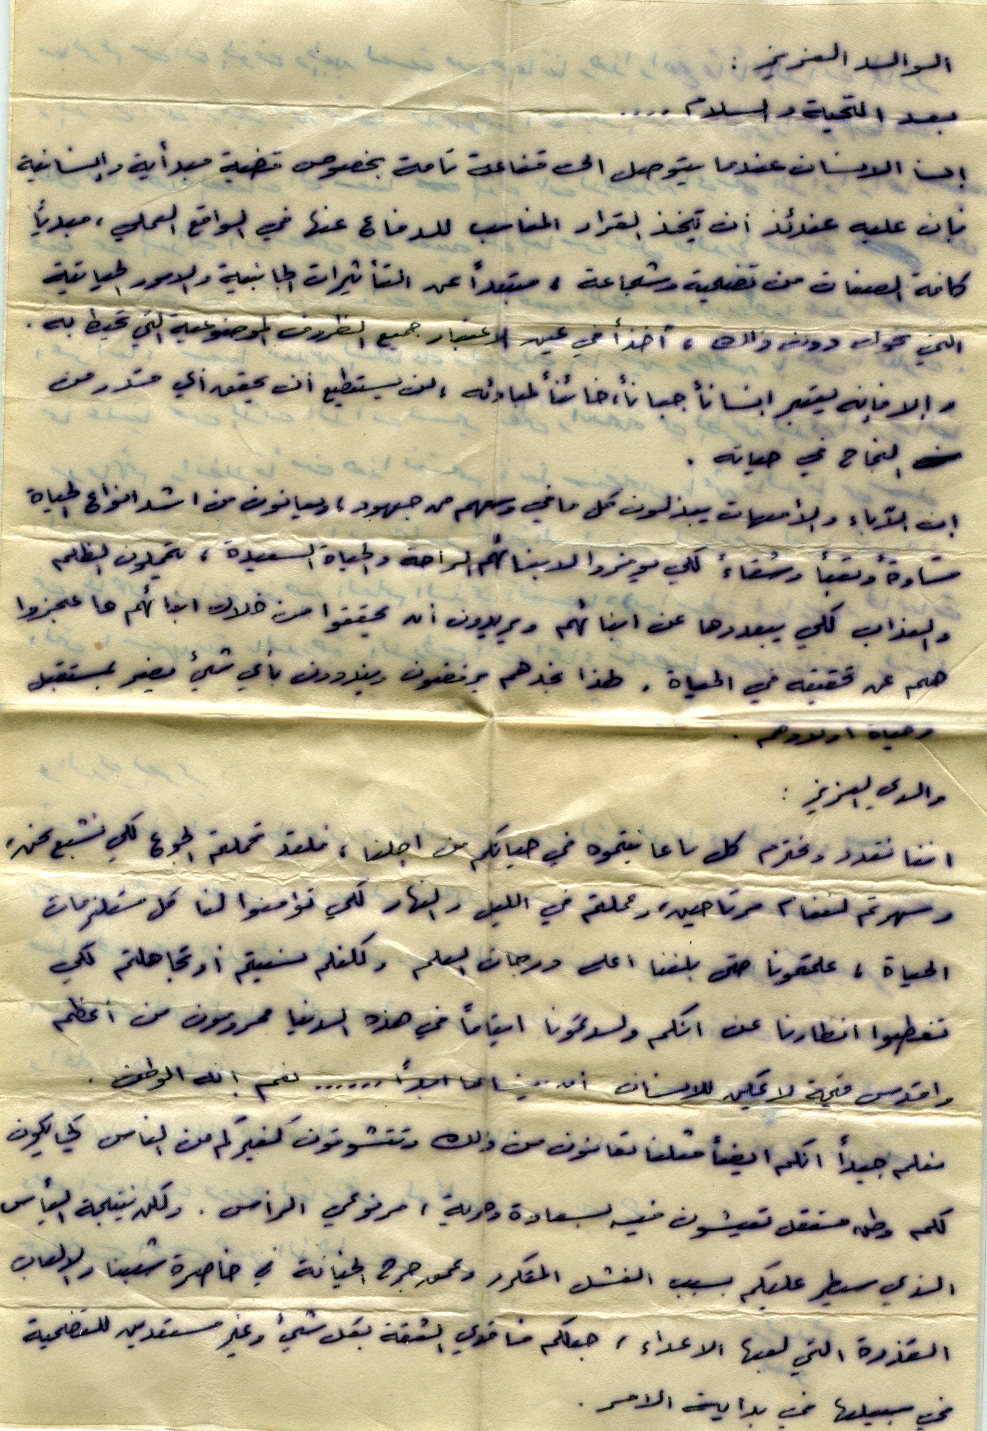 الوالد العزيز :
بعد التحية والسلام ....
إن الانسان عندما يتوصل الى قناعة تامة بخصوص قضية مبدأية وإنسانية
فإن عليه عندئذ ان يتخذ القرار المناسب للدفاع عنها في الواقع العملي ، مبديأ
كافة الصفات من تضحية وشجاعة ، مبتعدأ عن التأثيرات الجانبية والامور الحياتية
التي تحول دون ذلك ، أخذأ في عين الاعتبار جميع الظروف الموضوعية التي تحيط به .
و إلا فإنه يعتبر انسانأ جبانأ، خائنأ لمبادئه ، لن يستطيع أن يحقق أي قدر من
النجاح في حياته .
إن الآباء والأمهات يبذلون كل ما في وسعهم من جهود ، ويعانون من اشد انواع الحياة
قساوة وتعبأ وشقاء لكي يوفروا لابنائهم الراحة والحياة السعيدة ، يتحملون الظلم
والعذاب لكي يبعدوها عن ابنائهم ويريدون أن يحققوا من خلال ابنائهم ما عجزوا
هم عن تحقيقه في الحياة . لهذا نجدهم يرفضون وينددون بأي شيئ يضر بمستقبل
وحياة اولادهم .
والدي العزيز :
اننا نقدر ونحترم كل ما عانيتموه في حياتكم من اجلنا ، فلقد تحملتم الجوع لكي نشبع نحن ،
وسهرتم لننام مرتاحين ، وعملتم في الليل والنهار لكي تؤمنوا لنا كل مستلزمات
الحياة ، علمتمونا حتى بلغنا اعلى درجات العلم ولكنكم نسيتم أو تجاهلتم لكي
تغطيوا انظارنا عن انكم ولدتمونا ايتامأ في هذه الدنيا محرومون من أعظم
واقدس قيمة لا يمكن للانسان أن ينساها ابدأ ...... نعم إنه الوطن .
نعلم جيدأ انكم ايضأ مثلنا تعانون من ذلك وتتشوقون كغيركم من الناس لكي يكون
لكم وطن مستقل تعيشون فيه بسعادة وحرية ، مرفوعي الرأس . ولكن نتيجة اليأس
الذي سيطر عليكم بسبب الفشل المتكرر وعمق جرح الخيانة في خاصرة شعبنا والالعاب
القذرة التي لعبها الاعداء ، جعلكم فاقدي الثقة بكل شيئ وغير مستعدين للتضحية
في سبيلها في بداية الامر .